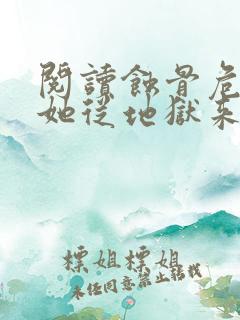 閱讀蝕骨危
她從地獄來
標姐標姐
未任同意禁止